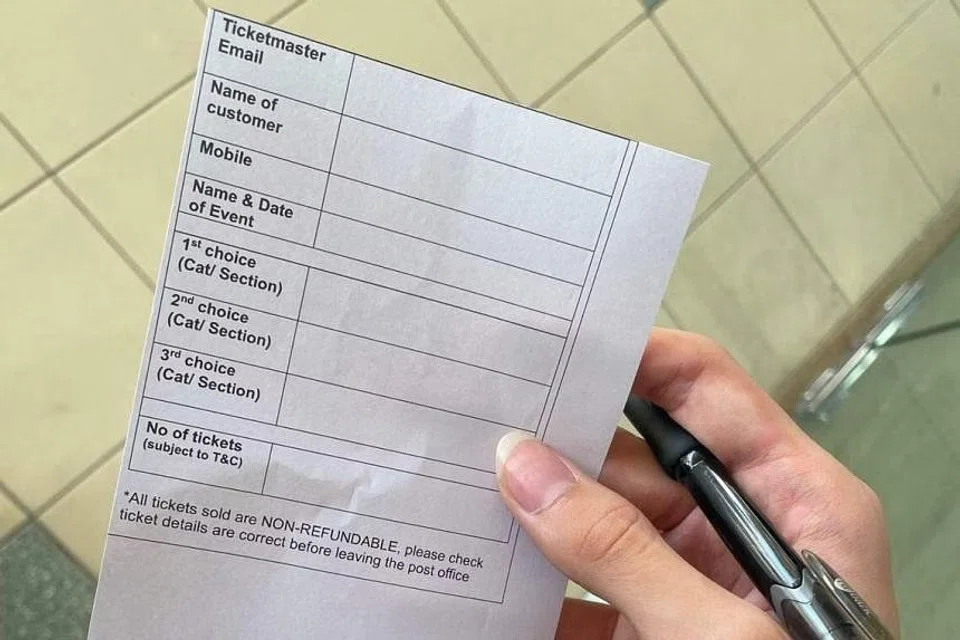 Ticketmaster
Email
Name of
customer
Mobile
Name & Date
of Event
1st choice
(Cat/ Section)
2nd choice
(Cat/ Section)
3rd choice
(Cat/ Section)
No of tickets
(subject to T&C)
*All tickets sold are NON-REFUNDABLE, please check
ticket details are correct before leaving the post office